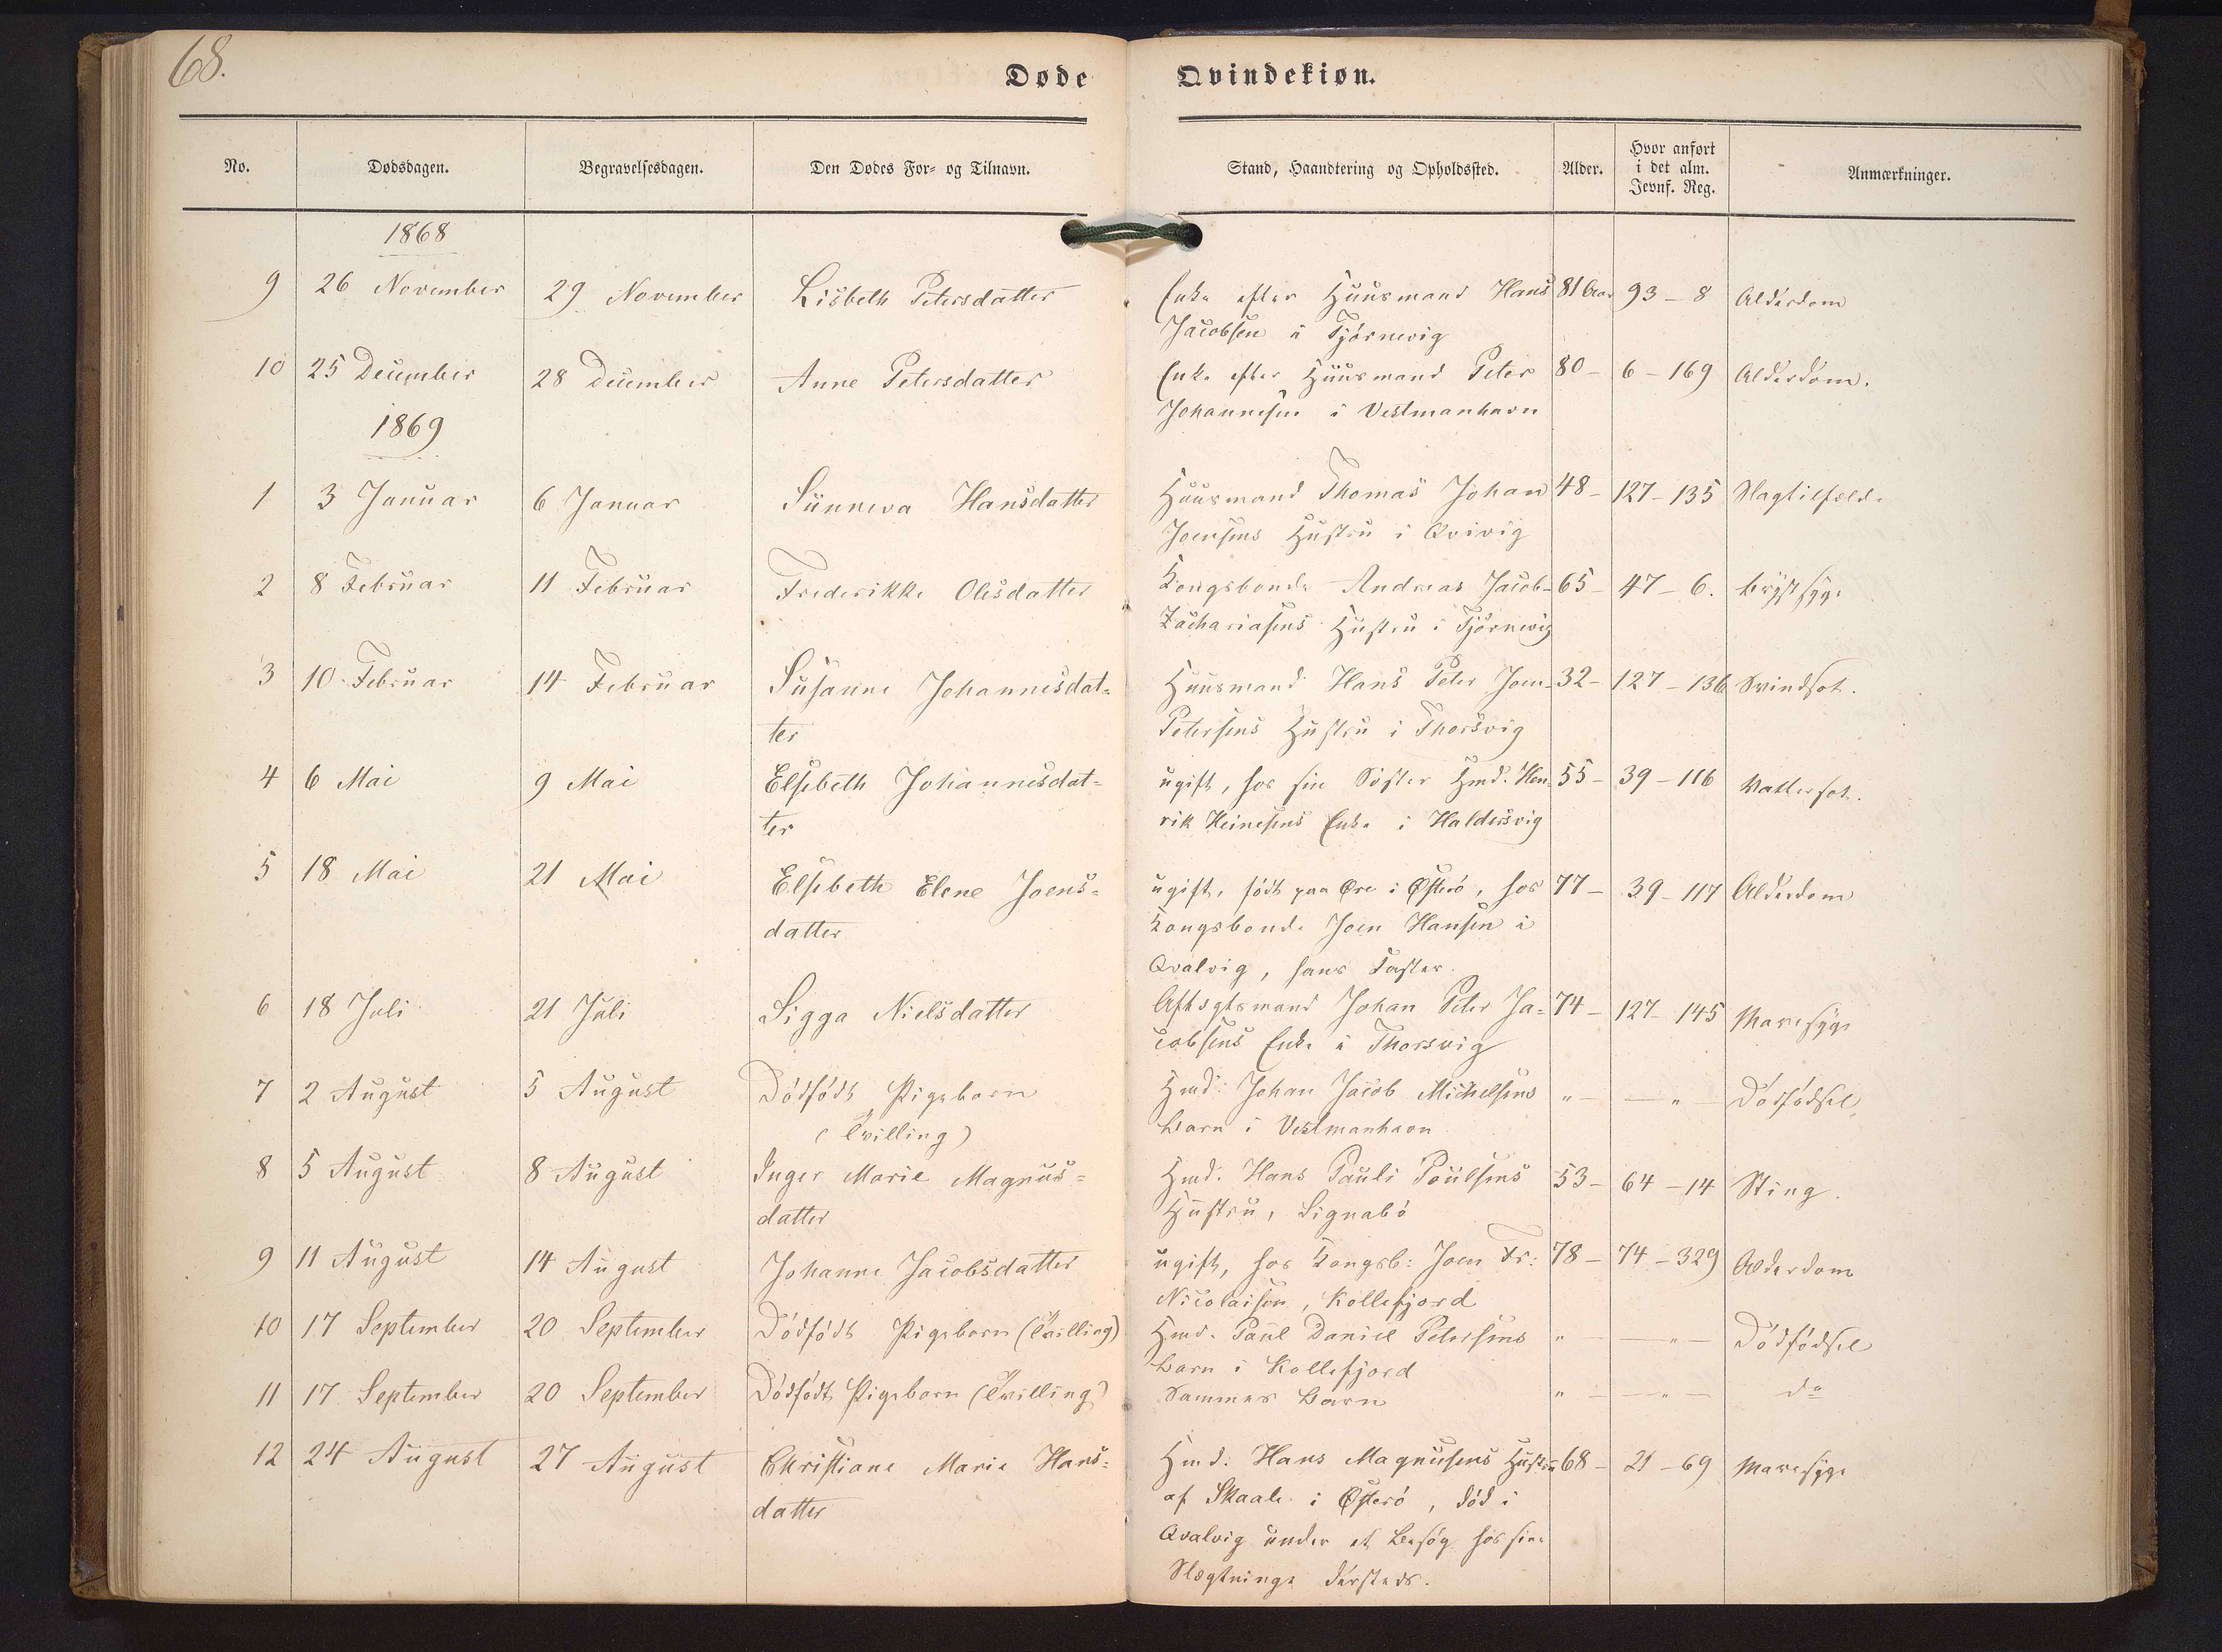 68.
Døde
Qvindekiøn.
No.
Dødsdagen.
Begravelsesdagen.
Den Dødes For- og Tilnavn.
Stand, Haandtering og Opholdssted.
Alder.
Hvor anført
i det alm.
Jevnf. Reg.
Anmærkninger.
1868
9 26 November 29 November Lisbeth Petersdatter Enke efter Huusmand Hans 81 Aar 93-8 Alderdom
Jacobsen i Tjörnevig
10 25 December 28 December Anne Petersdatter Enke efter Huusmand Peter 80- 6-169 Alderdom.
Johannesen i Vestmanhavn
1869
1 3 Januar 6 Januar Sünneva Hansdatter Huusmand Thomas Johan 48- 127-135 Slagtilfælde
Joensens Hustru i Qvivig
2 8 Februar 11 Februar Frederikke Olesdatter Kongsbonde Andreas Jacob 65- 47-6. Brystsyge
Zachariasens Hustru i Tjörnevig
3 10 Februar 14 Februar Susanne Johannesdat- Huusmand Hans Peter Joen- 32- 127-136 Svindsot.
ter Petersens Hustru i Thorsvig
4 6 Mai 9 Mai Elsebeth Johannesdat- ugift, hos sin Söster Hmd. Hen- 55- 39-116 Vattersot.
ter rik Heinesens Enke i Haldersvig
5 18 Mai 21 Mai Elsebeth Elene Joens- ugift, födt paa Øre i Østerö, hos 77- 39-117 Alderdom
datter Kongsbonde Joen Hansen i
Qvalvig, hans Faster.
6 18 Juli 21 Juli Sigga Nielsdatter Aftægtsmand Johan Peter Ja- 74- 127-145 Mavesyge
cobsens Enke i Thorsvig
7 2 August 5 August Dödfödt Pigebarn Hmd: Johan Jacob Michelsens " - - " - Dödfödsel
(Tvilling) Barn i Vestmanhavn
8 5 August 8 August Inger Marie Magnus- Hmd. Hans Pauli Poülsens 53- 64-14 Sting.
datter Hustru, Signabö
9 11 August 14 August Johanne Jacobsdatter ugift, hos Kongsb: Joen Fr: 78- 74-329 Alderdom
Nicolaisen, Kollefjord
10 17 September 20 September Dödfödt Pigebarn (Tvilling) Hmd. Paul Daniel Petersens " - - " - Dödfödsel
Barn i Kollefjord
11 17 September 20 September Dödfödt Pigebarn (Tvilling) Sammes Barn " - - " - do
12 24 August 27 August Christiane Marie Hans- Hmd: Hans Magnusens Hustru 68- 21-69 Mavesyge
datter af Skaale i Østerö, död i
Qvalvig under et Besög hos sine
Slægtninge dersteds.